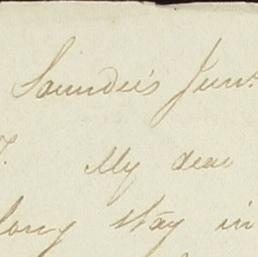 Saunders Junr.
My dear
long stay in